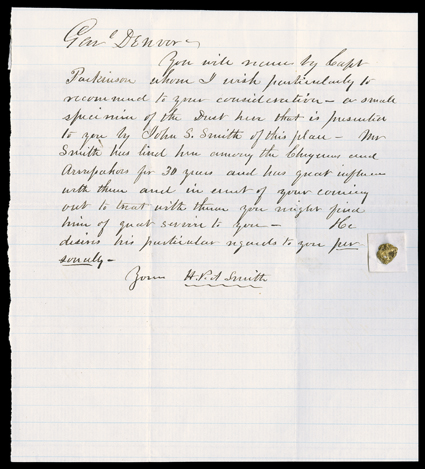 Genl Denver
You will receive by Capt
Parkinson whom I wish particularly to
recommend to your consideration - a small
specimen of the Dust here that is presented
to you by John S. Smith of this place - Mr
Smith has lived here among the Chyenns and
Arrapahos for 30 years and has great influence
with them and in event of your coming
out to treat with them you might find
him of great service to you - He
desires his particular regards to you per
sonally -
Yours H.P.A Smith